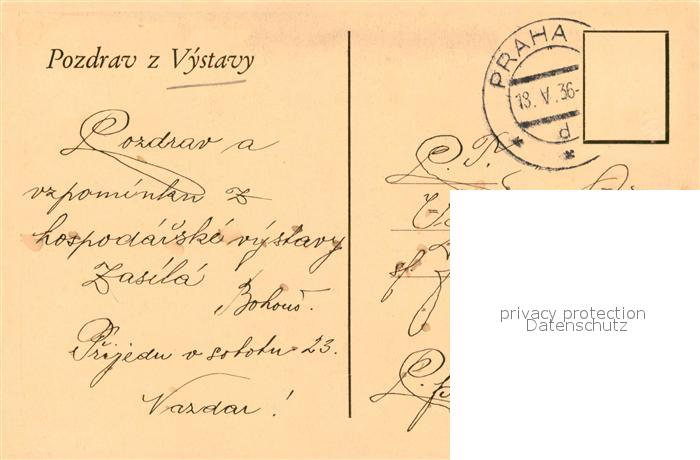 Pozdrav z Výstavy
PRAHA
18. V. 36-
d
Pozdrav a
vzpomínku z
hospodářské výstavy
Zasílá
Bohouš.
Přijedu v sobotu 23.
Nazdar!
privacy protection
Datenschutz